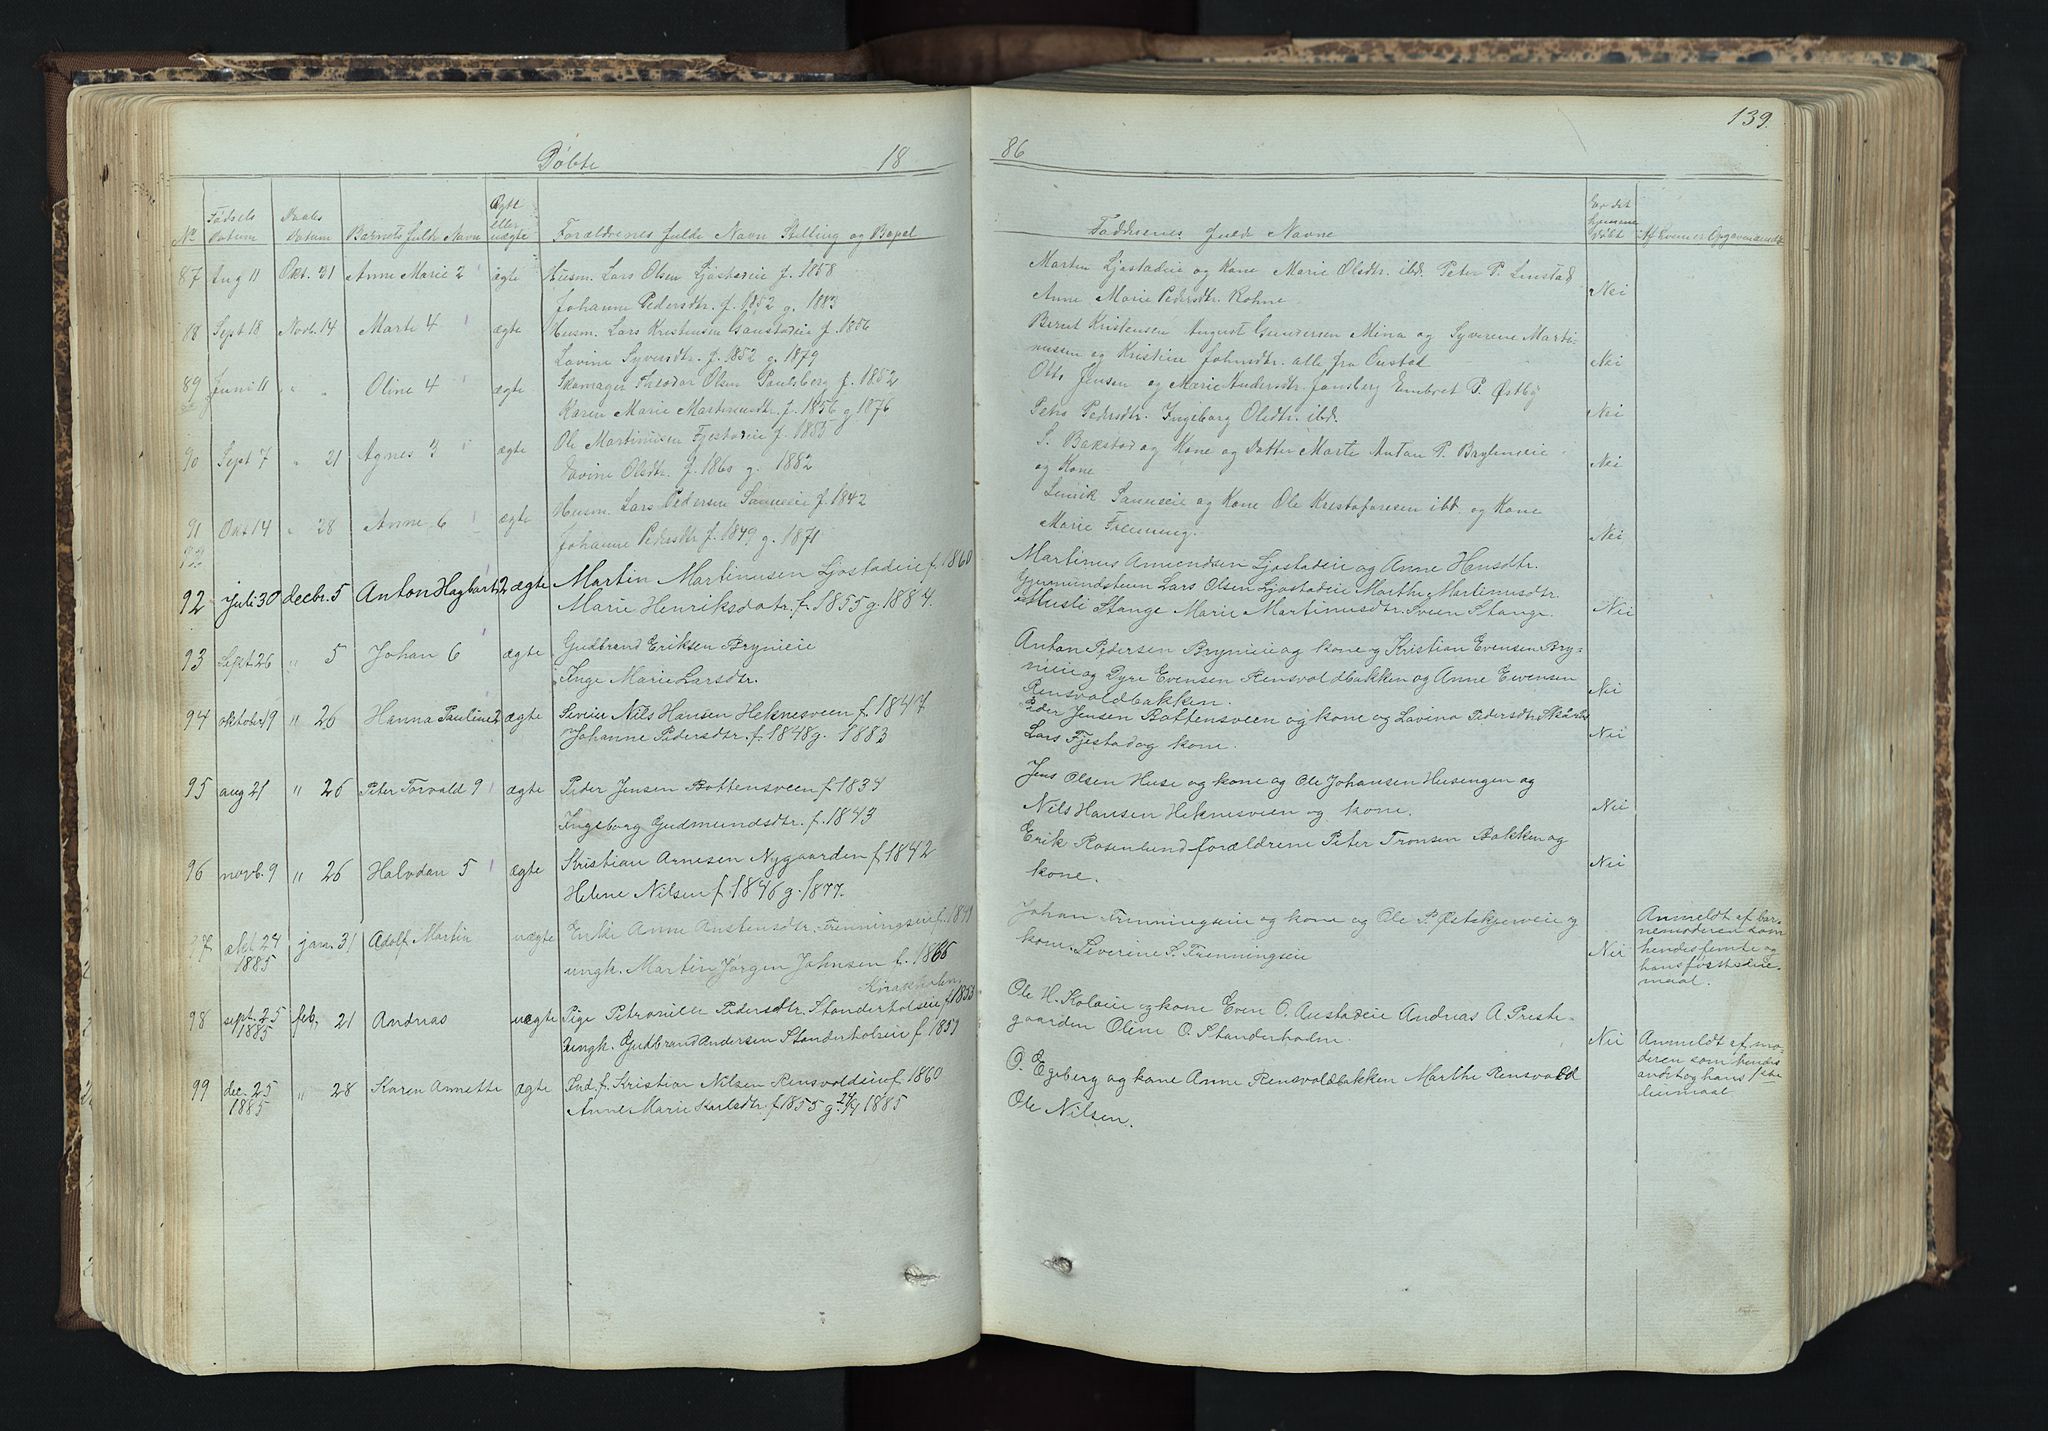 139.
Døbte 18 86
No Fødsels Datum Daabs Datum Barnets fulde Navn Ægte eller uægte Forældrenes fulde Navn Stilling og Bopæl
Faddernes fulde Navne Er det hjemme døbt
87 Aug 11 Okt. 31 Anne Marie 2 ægte Husm. Lars Olsen Ljøstadeie f. 1858
Johanne Pedersdtr. f. 1852 g. 1883
Marten Ljøstadeie og Kone Marie Olsdtr. ibd. Peter P. Linstad
Anne Marie Pedersdtr. Kohne
Nei
88 Sept 18 Novb. 14 Marte 4 ægte Husm. Lars Kristensen f. 1856
Lovine Syversdtr. f. 1852 g. 1879
Bernt Kristensen August Gundersen Mina og Syverine Marti-
nusen og Kristine Johnsdtr. alle fra
Nei
89 Juni 11 " " Oline 4 ægte Skomager Theodor Olsen Paulsberg f. 1852
Karen Marie Martinusdtr. f. 1856 g. 1876
Otto Jensen og Marie Andersdtr. Embret P. Østby
Petra Pedersdtr. Ingeborg Olsdtr. ibd.
Nei
90 Sept 7 " 21 Agnes 3 ægte Ole Martinusen Fjestadeie f. 1855
Lovine Olsdtr. f. 1860 g. 1882
S. Bakstad og Kone og Datter Marte Antan P. Bryneie
og Kone
Nei
91 Okt 14 " 28 Anne 6 ægte Husm. Lars Pedersen f. 1842
Johanne Pedersdtr f. 1849 g. 1871
og Kone Ole Kristofersen ibd. og Kone
Marie Frenning.
Nei
92 Juli 30 decbr. 5 Anton Hagbart 2 ægte Martin Martinusen Ljøstadeie f. 1860
Marie Henriksdatr. f. 1855 g. 1884.
Martinus Amundsen Ljøstadeie og Anne Hansdtr.
Gurmundstuen Lars Olsen Ljøstadeie Marthe Martinusdtr.
Stange Marie Martinusdtr. Sveen Stange.
Nei
93 Sept 26 " 5 Johan 6 ægte Gudbrand Eriksen Brynieie
Inge Marie Larsdtr.
Anton Pedersen Brynieie og kone og Kristian Evensen Bry-
nieie og Dyre Evensen Rensvoldbakken og Anne Evensen
Rensvoldbakken.
Nei
94 oktober 19 " 26 Hanna Pauline 2 ægte Sveier Nils Hansen Heknesveen f. 1847
Johanne Pedersdtr. f. 1848 g. 1883
Peder Jensen Bottensveen og kone og Lovina Pedersdtr.
Lars Fjestad og kone.
Nei
95 aug 21 " 26 Peter Torvald 9 ægte Peder Jensen Bottensveen f. 1834
Ingeborg Gudmundsdtr. f. 1843
Jens Olsen Huse og kone og Ole Johansen Husengen og
Nils Hansen Heknesveien og kone.
Nei
96 novb. 9 " 26 Halvdan 5 ægte Kristian Arnesen Nygaarden f. 1842
Helene Nilsen f. 1846 g. 1877.
Erik Rosenlund forældrene Peter Tronsen Bakken og
kone.
Nei
97 okt 24 1885 jan. 31 Adolf Martin uægte Enke Anne Austensdtr. Frenningseie f. 1841
ungk. Martin Jørgen Johnsen f. 1865
Johan Frenningseie og kone og Ole P. Østskjerveie og
kone. Severine S. Frenningseie
Nei
Anmeldt af bar-
nemoderen som
hendes femte og
hans første leie-
maal.
98 sept. 25 1885 feb. 21 Andreas uægte Pige Petronille Pedersdtr. Standerholseie f. 1853
Ungk. Gudbrand Andersen Standerholseie f. 1851
Ole H. Kolaeie og kone Even O. Austadeie Andreas A. Preste-
gaarden Oline O. Standerholm.
Nei
Anmeldt af mo-
deren som hendes
andet og hans 1ste
leiemaal
99 dec. 25 1885 " 28 Karen Annette ægte Ind. f. Kristian Nilsen Rensvoldeie f. 1860
Anne Marie Karlsdtr. f. 1855 g. 1885
O. Egeberg og kone Anne Rensvoldbakken Marthe Rensvold
Ole Nilsen.